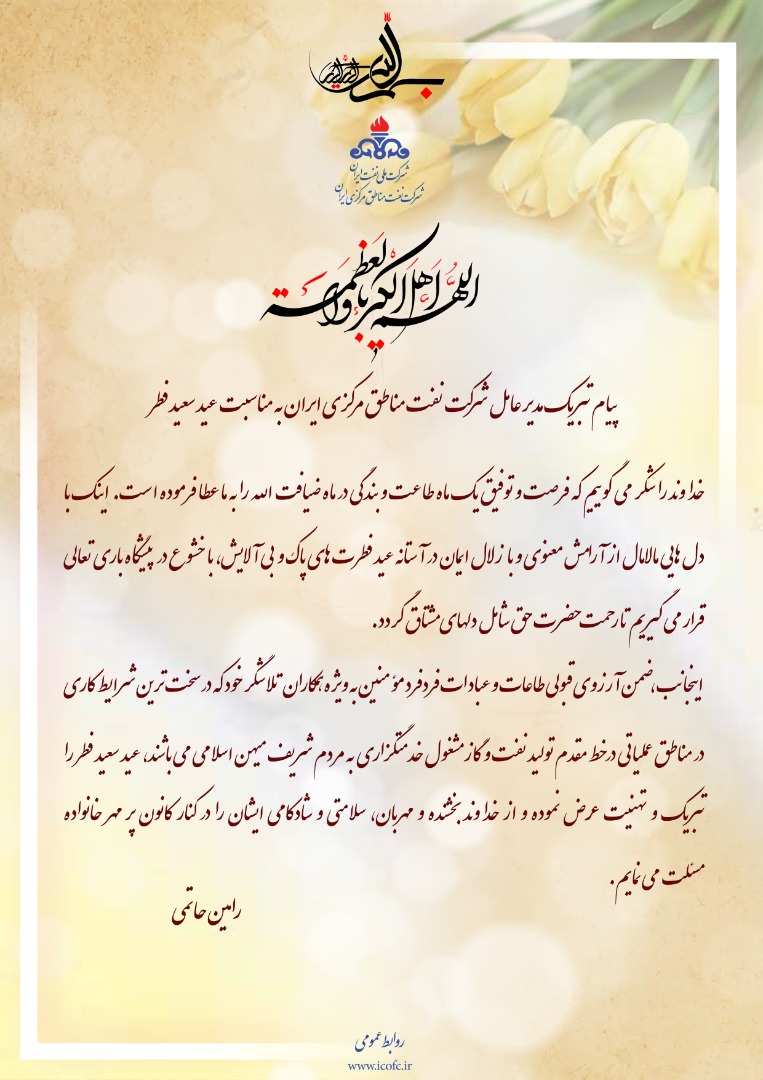 بسم الله الرحمن الرحیم
شرکت ملی نفت ایران
شرکت نفت مناطق مرکزی ایران
اللهم اهل الکبریاء والعظمة
پیام تبریک مدیرعامل شرکت نفت مناطق مرکزی ایران به مناسبت عید سعید فطر
خداوند را شکر می گوییم که فرصت و توفیق یک ماه طاعت و بندگی در ماه ضیافت الله را به ما عطا فرموده است. اینک با
دل هایی مالامال از آرامش معنوی و با زلال ایمان در آستانه عید فطرت های پاک و بی آلایش، با خشوع در پیشگاه باری تعالی
قرار می گیریم تا رحمت حضرت حق شامل دلهای مشتاق گردد.
اینجانب، ضمن آرزوی قبولی طاعات و عبادات فرد فرد مؤمنین به ویژه همکاران تلاشگر خود که در سخت ترین شرایط کاری
در مناطق عملیاتی در خط مقدم تولید نفت و گاز مشغول خدمتگزاری به مردم شریف میهن اسلامی می باشند، عید سعید فطر را
تبریک و تهنیت عرض نموده و از خداوند بخشنده و مهربان، سلامتی و شادکامی ایشان را در کنار کانون پر مهر خانواده
مسئلت می نمایم.
رامین حاتمی
روابط عمومی
www.icofc.ir